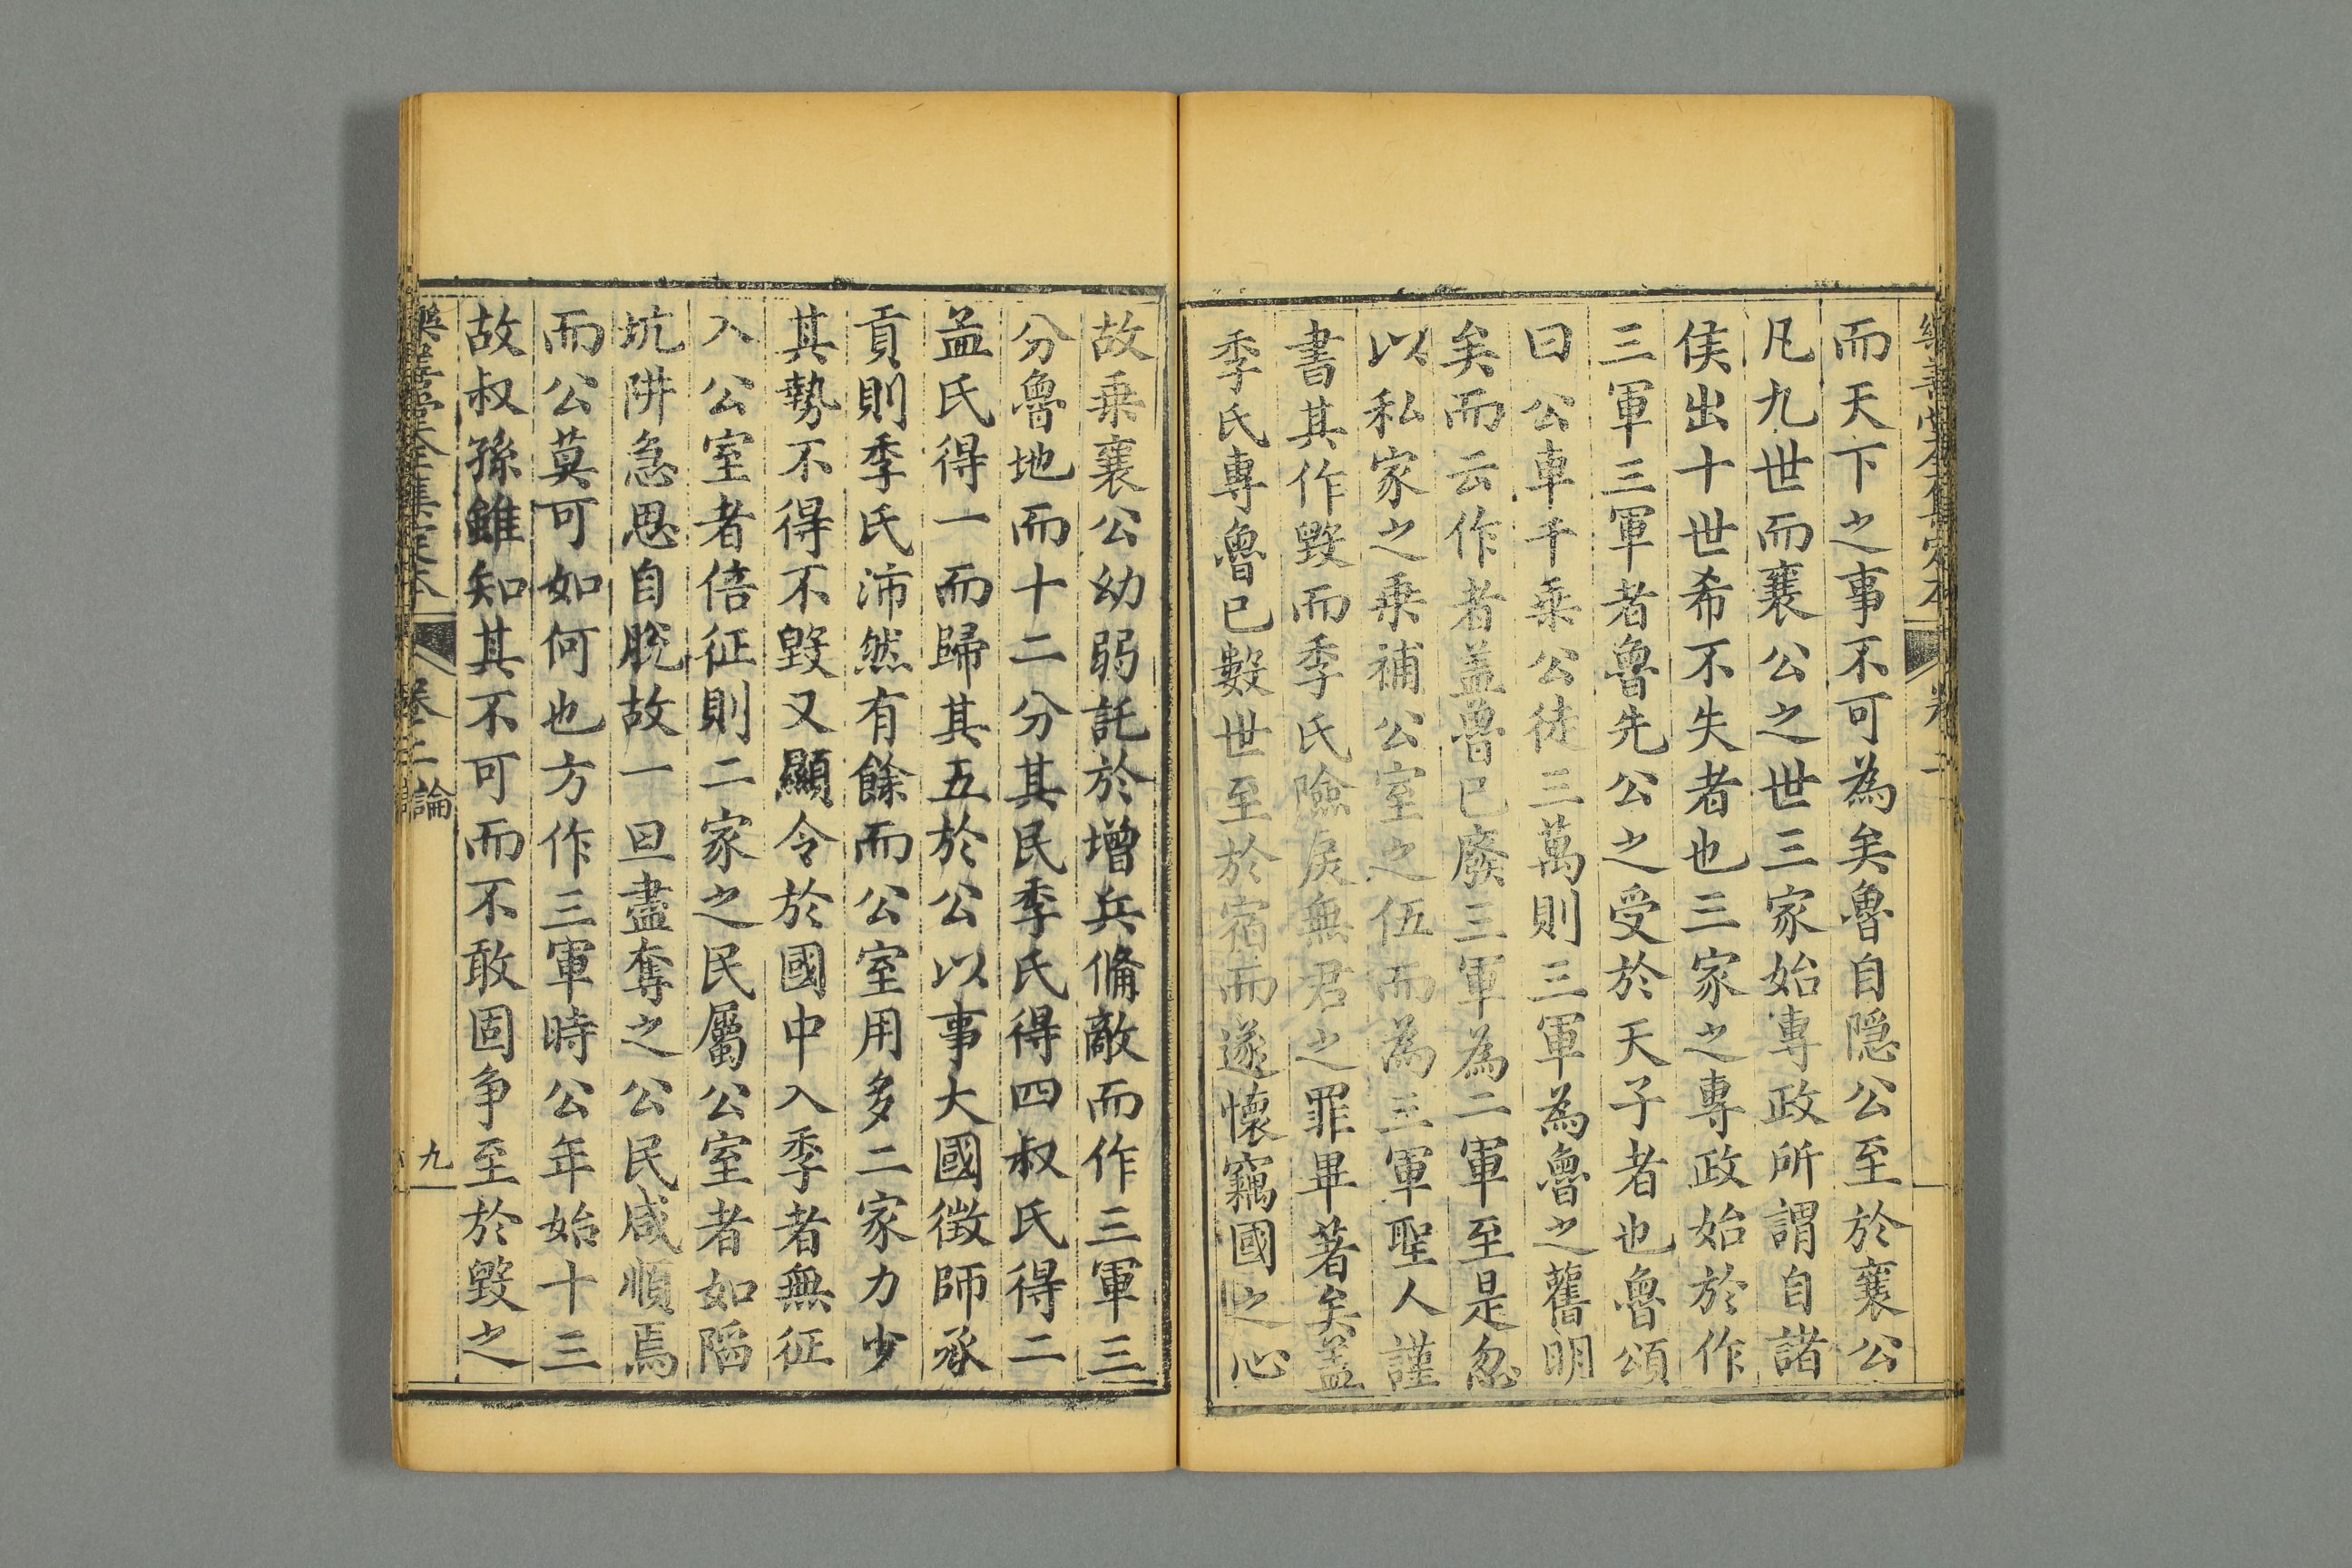 樂善堂全集定本
卷二
而天下之事不可為矣魯自隱公至於襄公
凡九世而襄公之世三家始專政所謂自諸
侯出十世希不失者也三家之專政始於作
三軍三軍者魯先公之受於天子者也魯頌
曰公車千乘公徒三萬則三軍為魯之舊明
矣而云作者盖魯已廢三軍為二軍至是忽
以私家之乗補公室之伍而為三軍聖人謹
書其作毀而季氏險戾無君之罪畢著矣盖
季氏專魯已數世至於宿而遂懷竊國之心
故乗襄公幼弱託於增兵備敵而作三軍三
分魯地而十二分其民季氏得四叔氏得二
孟氏得一而歸其五於公以事大國徴師承
貢則季氏沛然有餘而公室用多二家力少
其勢不得不毀又顯令於國中入季者無征
入公室者倍征則二家之民屬公室者如陷
坑阱急思自脫故一旦盡奪之公民咸順焉
而公莫可如何也方作三軍時公年始十三
故叔孫雖知其不可而不敢固争至於毀之
樂善堂全集定本
卷二論
九